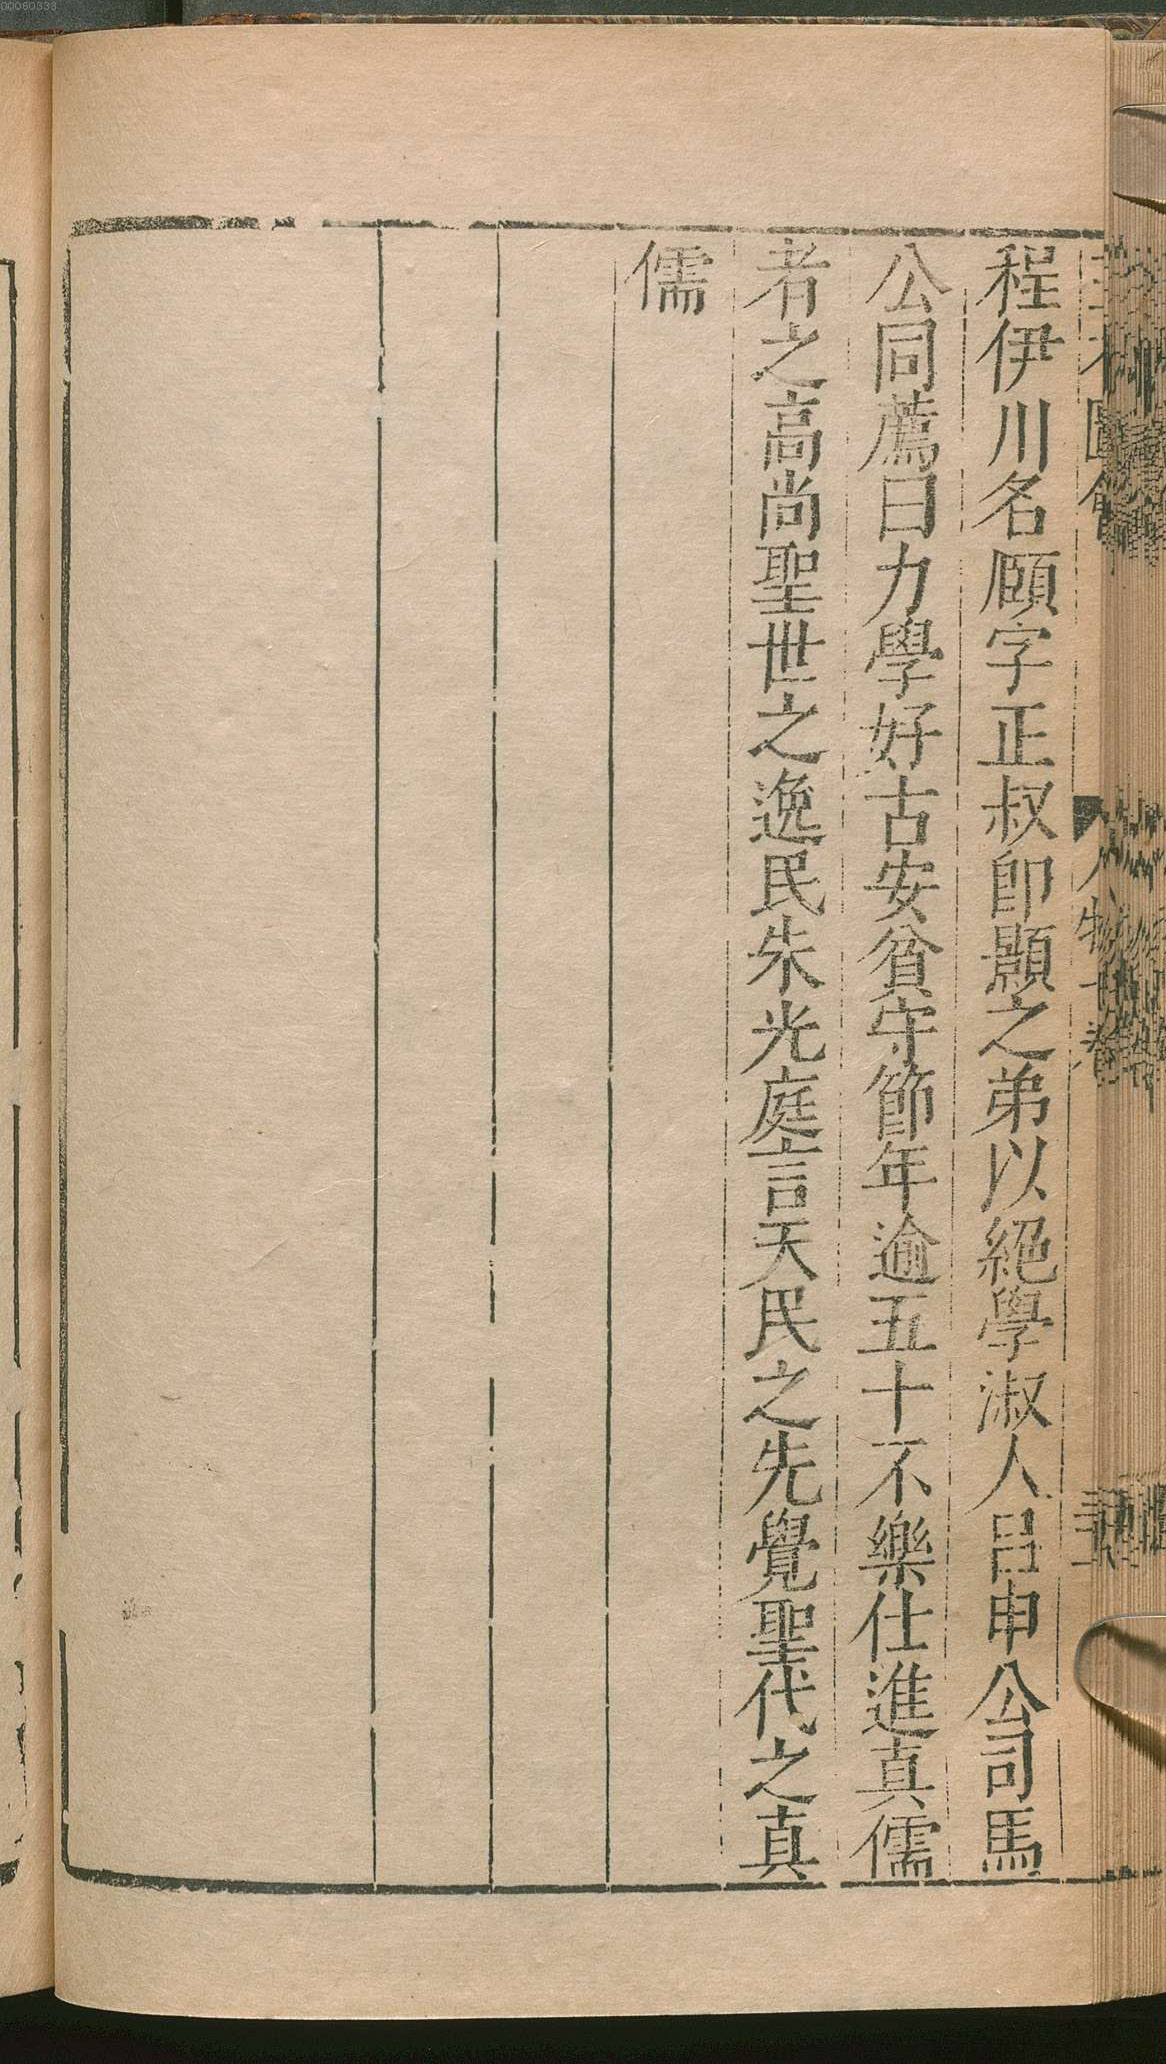 程伊川名頤字正叔卽顥之弟以絕學淑人呂申公司馬
公同薦曰力學好古安貧守節年逾五十不樂仕進真儒
者之高尚聖世之逸民朱光庭言天民之先覺聖代之真
儒
人物
00060333